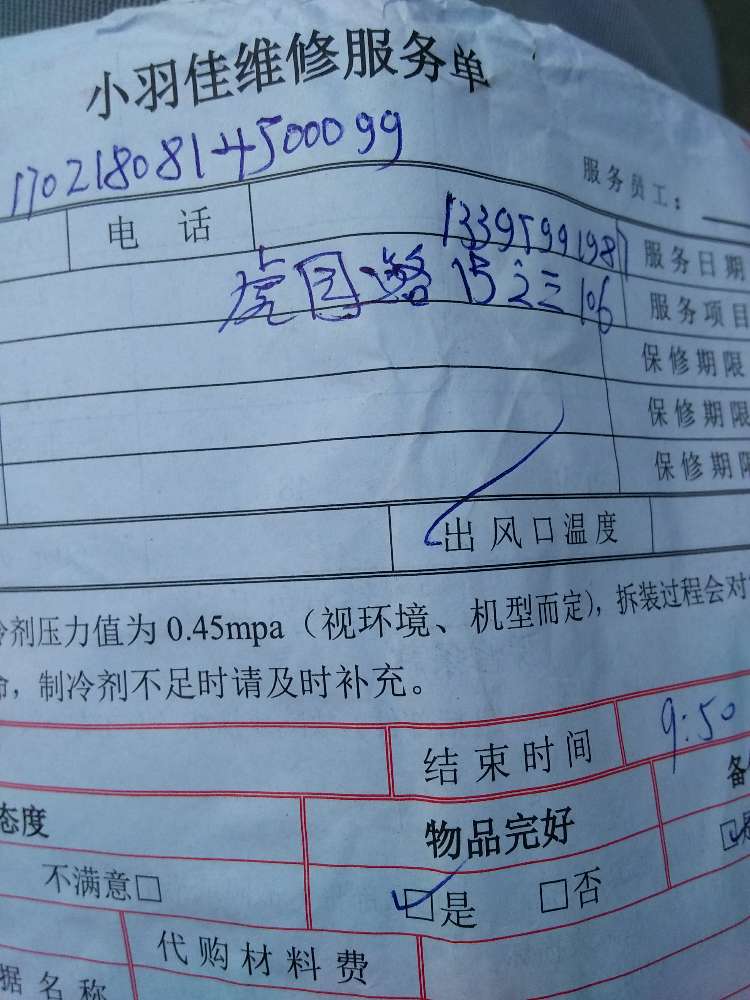 小羽佳维修服务单
1702180814500099
服务员工：
电 话 13395991987 服务日期
虎园路15之三106 服务项目
保修期限
保修期限
保修期限
出风口温度
冷剂压力值为 0.45mpa（视环境、机型而定），拆装过程会对
命，制冷剂不足时请及时补充。
结束时间 9:50
态度 物品完好 备
不满意□ □是 □否
代购材料费
据名称